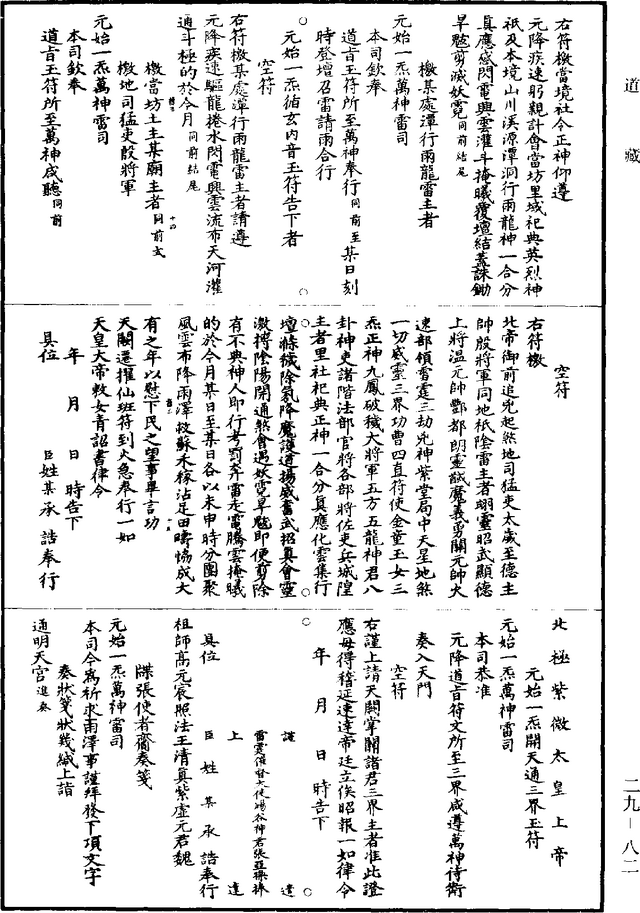 道藏
右符檄當境社令正神仰遵
元降疾速躬親計會當坊里域祀典英烈神
祇及本境山川溪源潭洞行雨龍神一合分
真應感閃電興雲灌斗掩曦覆壇結蓋誅鋤
旱魃剪滅妖霓同前結尾
檄某處潭行雨龍雷主者
元始一炁萬神雷司
本司欽奉
道旨玉符所至萬神奉行同前至某日刻
時登壇召雷請雨合行
元始一炁循玄內音玉符告下者
空符
右符檄某處潭行雨龍雷主者請遵
元降疾速驅龍捲水閃電興雲流布天河灌
通斗極的於今月同前結尾
檄當坊土主某廟主者同前文
檄地司猛吏殷將軍
元始一炁萬神雷司
本司欽奉
道旨玉符所至萬神咸聽同前
空符
右符檄
北帝御前追兇起煞地司猛吏太歲至德主
帥殷將軍同地祇陰雷主者翊靈昭武顯德
上將溫元帥酆都朗靈馘魔義勇關元帥火
速部領雷霆三劫兇神紫堂局中天星地煞
一切威靈三界功曹四直符使金童玉女三
炁正神九鳳破穢大將軍五方五龍神君八
卦神吏諸階法部官將各部將佐吏兵城隍
主者里社祀典正神一合分真應化雲集行
壇滌穢除氛降魔護道揚威奮武招真會靈
激摶陰陽開通煞會遇妖霓旱魃即便剪除
有不典神人即行考罰奔雷走電騰雲掩曦
的於今月某日至某日各以未申時分團聚
風雲布降雨澤救蘇禾稼沾足田疇協成大
有之年以慰下民之望事畢言功
天閽遷擢仙班符到火急奉行一如
天皇大帝敕女青詔書律令
年 月 日 時告下
具位 臣姓某承 誥奉行
北極紫微太皇上帝
元始一炁開天通三界玉符
元始一炁萬神雷司
本司恭准
元降道旨符文所至三界咸遵萬神侍衛
奏入天門
空符
右謹上請天關掌關諸君三界主者准此證
應毋得稽延違逹帝廷立俟昭報一如律令
年 月 日 時告下
謹達
雷霆
上達
具位 臣姓某承 誥奉行
祖師高元宸照法王清真紫虛元君魏
牒張使者齎奏箋
元始一炁萬神雷司
本司今為祈求雨澤事謹拜發下項文字
奏狀箋狀幾緘上詣
通明天宮進奏
二九—八二